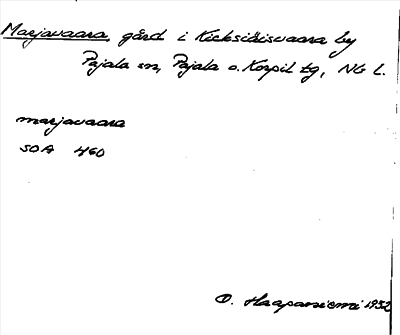 Marjavaara, gård i Kieksiäisvaara by
Pajala sn, Pajala o. Korpil tg, Nb l.
marjavaara
SOA 460
O. Haapaniemi 1932